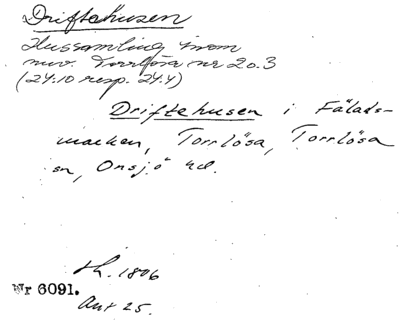 Driftehusen
Hussamling inom
nuv. Torrlösa nr 20.3
(24:10 resp. 24:4)
Driftehusen i Fälads-
marken, Torrlösa, Torrlösa
sn, Onsjö hd.
sk. 1806
Nr 6091.
Avt 25.